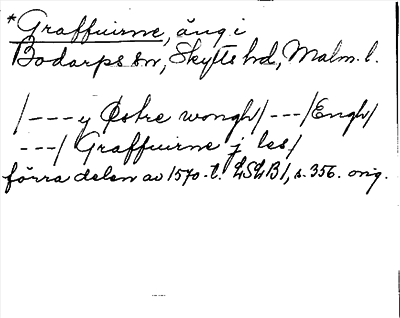 *Graffuirne, äng i
Bodarps sn, Skytts hd, Malm. l.
/---y Østre wongh/---/Engh/
---/ Graffuirne j les/
förra delen av 1570-t. LSLB1, s. 356. orig.